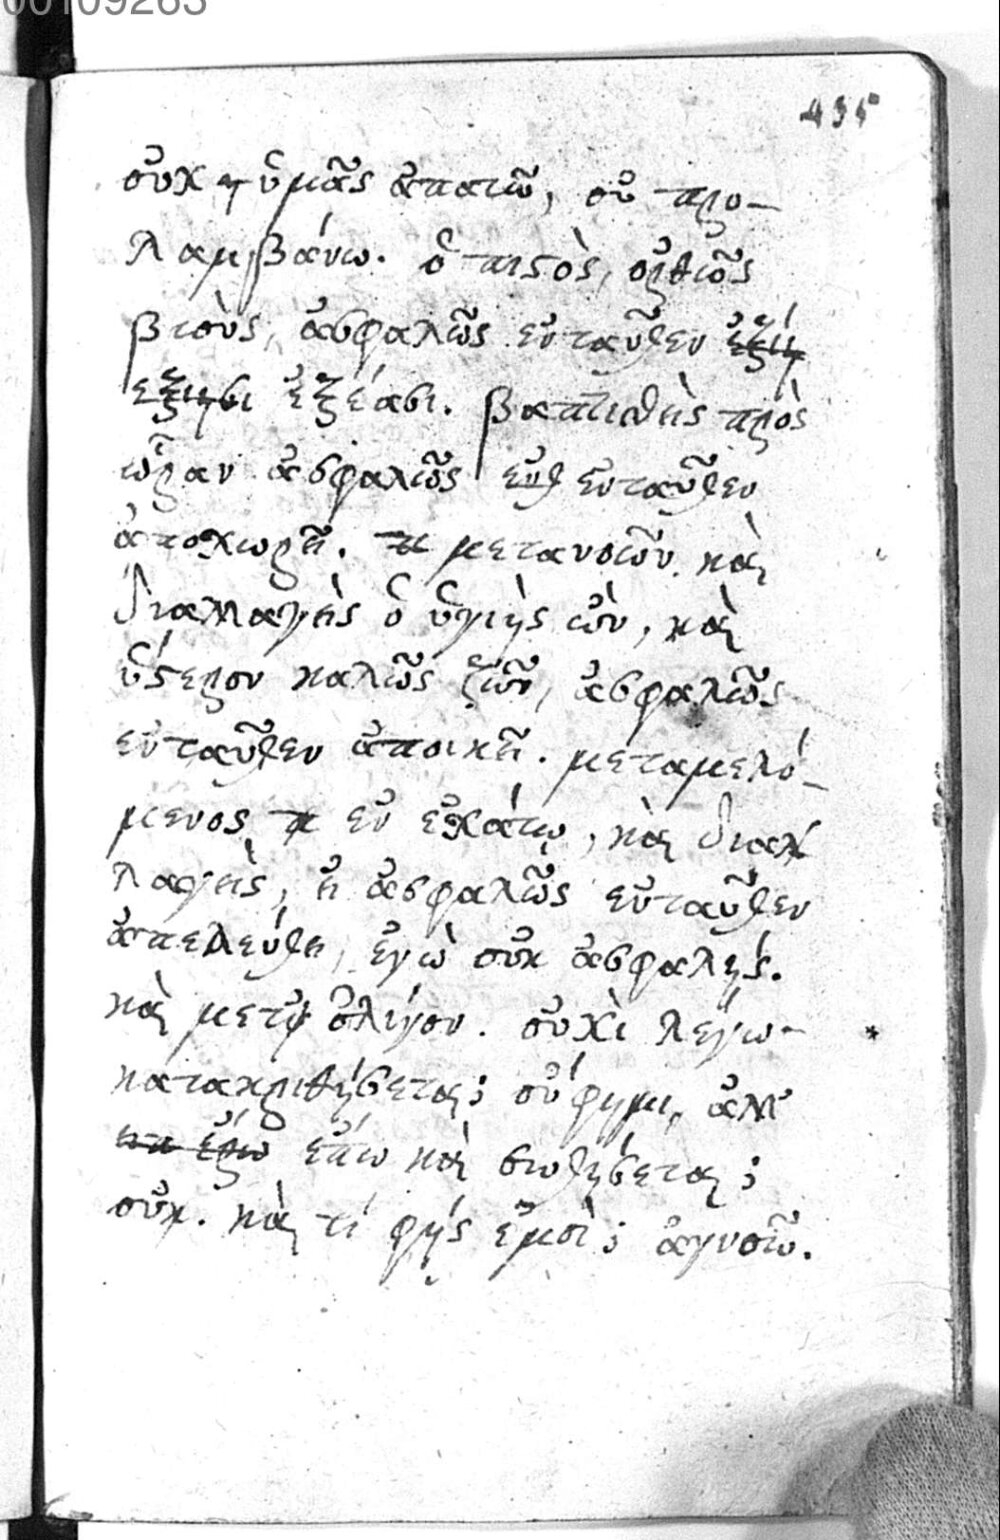 00109263
435
οὐχ ὑμᾶς ἀπατῶ, οὐ προ-
λαμβάνω. ὁ πιστὸς, ὀρθῶς
βιοὺς, ἀσφαλῶς ἐνταῦθεν
ἐξέασι. βαπτισθεὶς πρὸς
ὥραν ἀσφαλῶς ἐνταῦθεν
ἀποχωρεῖ. μετανοῶν καὶ
διαλλαγεὶς ὁ ὑγιὴς ὢν, καὶ
ὕστερον καλῶς ζῶν, ἀσφαλῶς
ἐνταῦθεν ἀποικεῖ. μεταμελό-
μενος ἐν ἐσχάτῳ, καὶ διαλ
λαγεὶς, εἰ ἀσφαλῶς ἐνταῦθεν
ἀπελεύσει, ἐγὼ οὐκ ἀσφαλής.
καὶ μετ' ὀλίγον. οὐχὶ λέγω- *
κατακριθήσεται; οὔ φημι, ἀλλ'
εἴπω καὶ σωθήσεται;
οὐκ. καὶ τί φῄς ἐμοὶ; ἀγνοῶ.